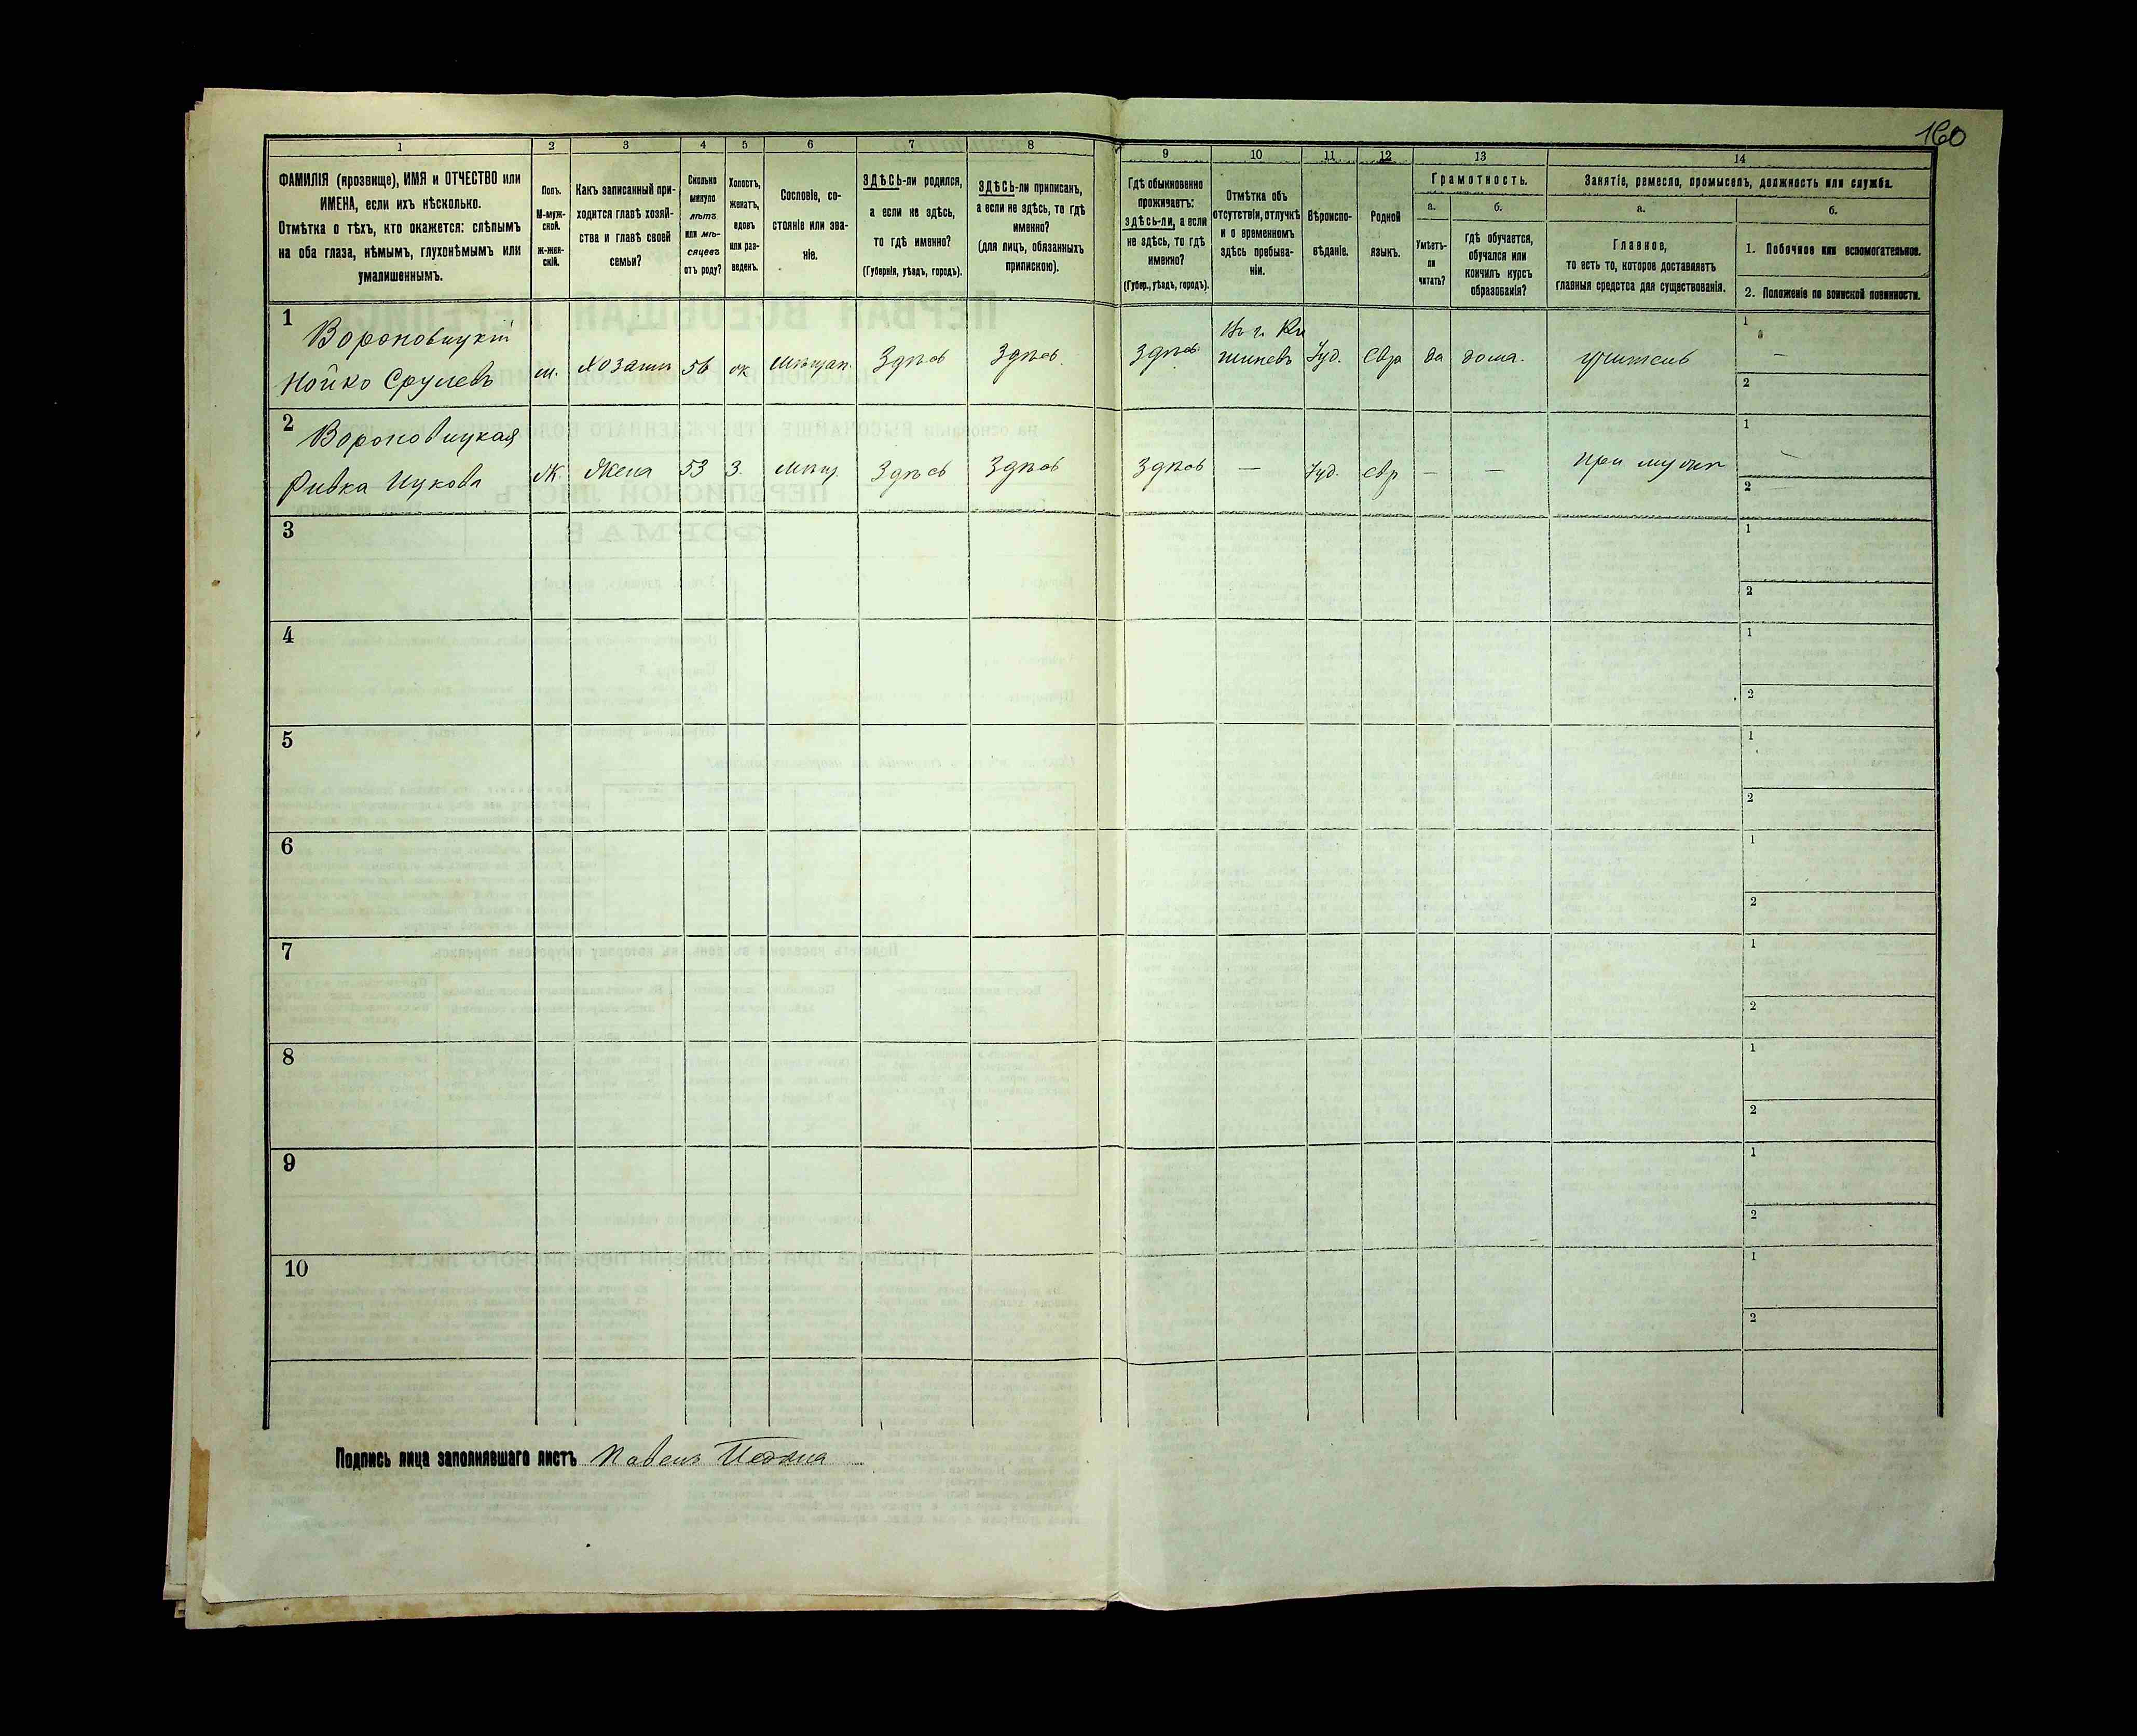 160
1 2 3 4 5 6 7 8 9 10 11 12 13 14
ФАМИЛІЯ (прозвище), ИМЯ и ОТЧЕСТВО или ИМЕНА, если ихъ нѣсколько.
Отмѣтка о тѣхъ, кто окажется: слѣпымъ на оба глаза, нѣмымъ, глухонѣмымъ или умалишеннымъ.
Полъ.
М-муж-
ской.
Ж-жен-
скій.
Какъ записанный при-
ходится главѣ хозяй-
ства и главѣ своей
семьи?
Сколько
минуло
лѣтъ
или мѣ-
сяцевъ
отъ роду?
Холостъ,
женатъ,
вдовъ
или раз-
веденъ.
Сословіе, со-
стояніе или зва-
ніе.
ЗДѢСЬ-ли родился,
а если не здѣсь,
то гдѣ именно?
(Губернія, уѣздъ, городъ).
ЗДѢСЬ-ли приписанъ,
а если не здѣсь, то гдѣ
именно?
(для лицъ, обязанныхъ
припискою).
Гдѣ обыкновенно
проживаетъ:
здѣсь-ли, а если
не здѣсь, то гдѣ
именно?
(Губер., уѣздъ, городъ).
Отмѣтка объ
отсутствіи, отлучкѣ
и о временномъ
здѣсь пребыва-
ніи.
Вѣроиспо-
вѣданіе.
Родной
языкъ.
Грамотность.
а.
Умѣетъ-
ли
читать?
б.
Гдѣ обучается,
обучался или
кончилъ курсъ
образованія?
Занятіе, ремесло, промыселъ, должность или служба.
а.
Главное,
то есть то, которое доставляетъ
главныя средства для существованія.
б.
1. Побочное или вспомогательное.
2. Положеніе по воинской повинности.
1
Вороновицкій
Нойко Срулевъ
м. Хозяинъ 56 ж Мѣщан. Здѣсь Здѣсь Здѣсь Въ г. Ки
шиневъ Іуд. Евр да дома. учитель 1 —
2
2
Вороновицкая
Ривка Ицкова
Ж. Жена 53 З. Мѣщ. Здѣсь Здѣсь Здѣсь — Іуд. евр — — при мужѣ 1 —
2 —
3 1
2
4 1
2
5 1
2
6 1
2
7 1
2
8 1
2
9 1
2
10 1
2
Подпись лица заполнявшаго листъ Павелъ